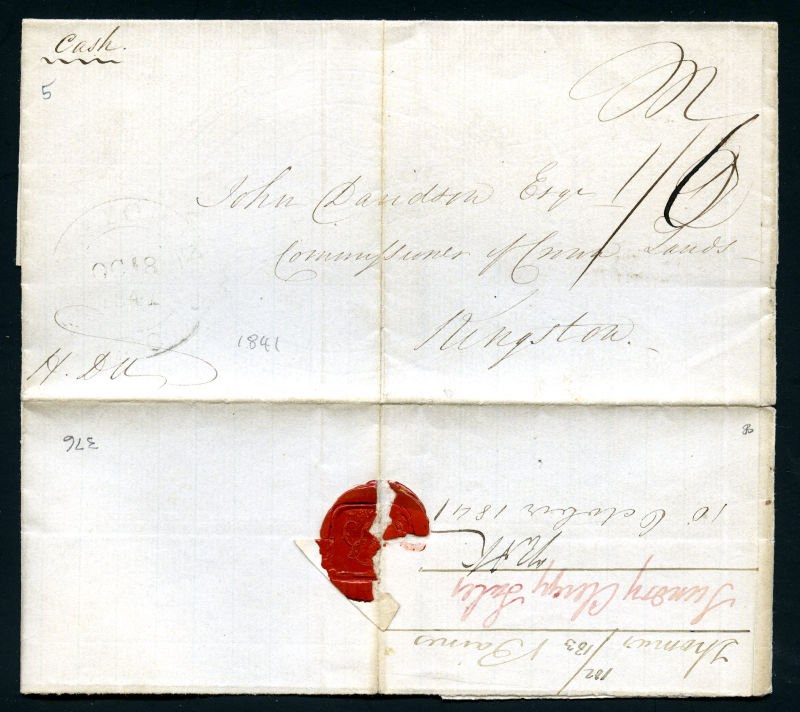 Cash.
5
1/6
John Davidson Esqr
Commissioner of Crown Lands
Kingston.
OC 18
1841
1841
376
Thomas Baines
182/183
Sundry Clergy Sales
16 October 1841